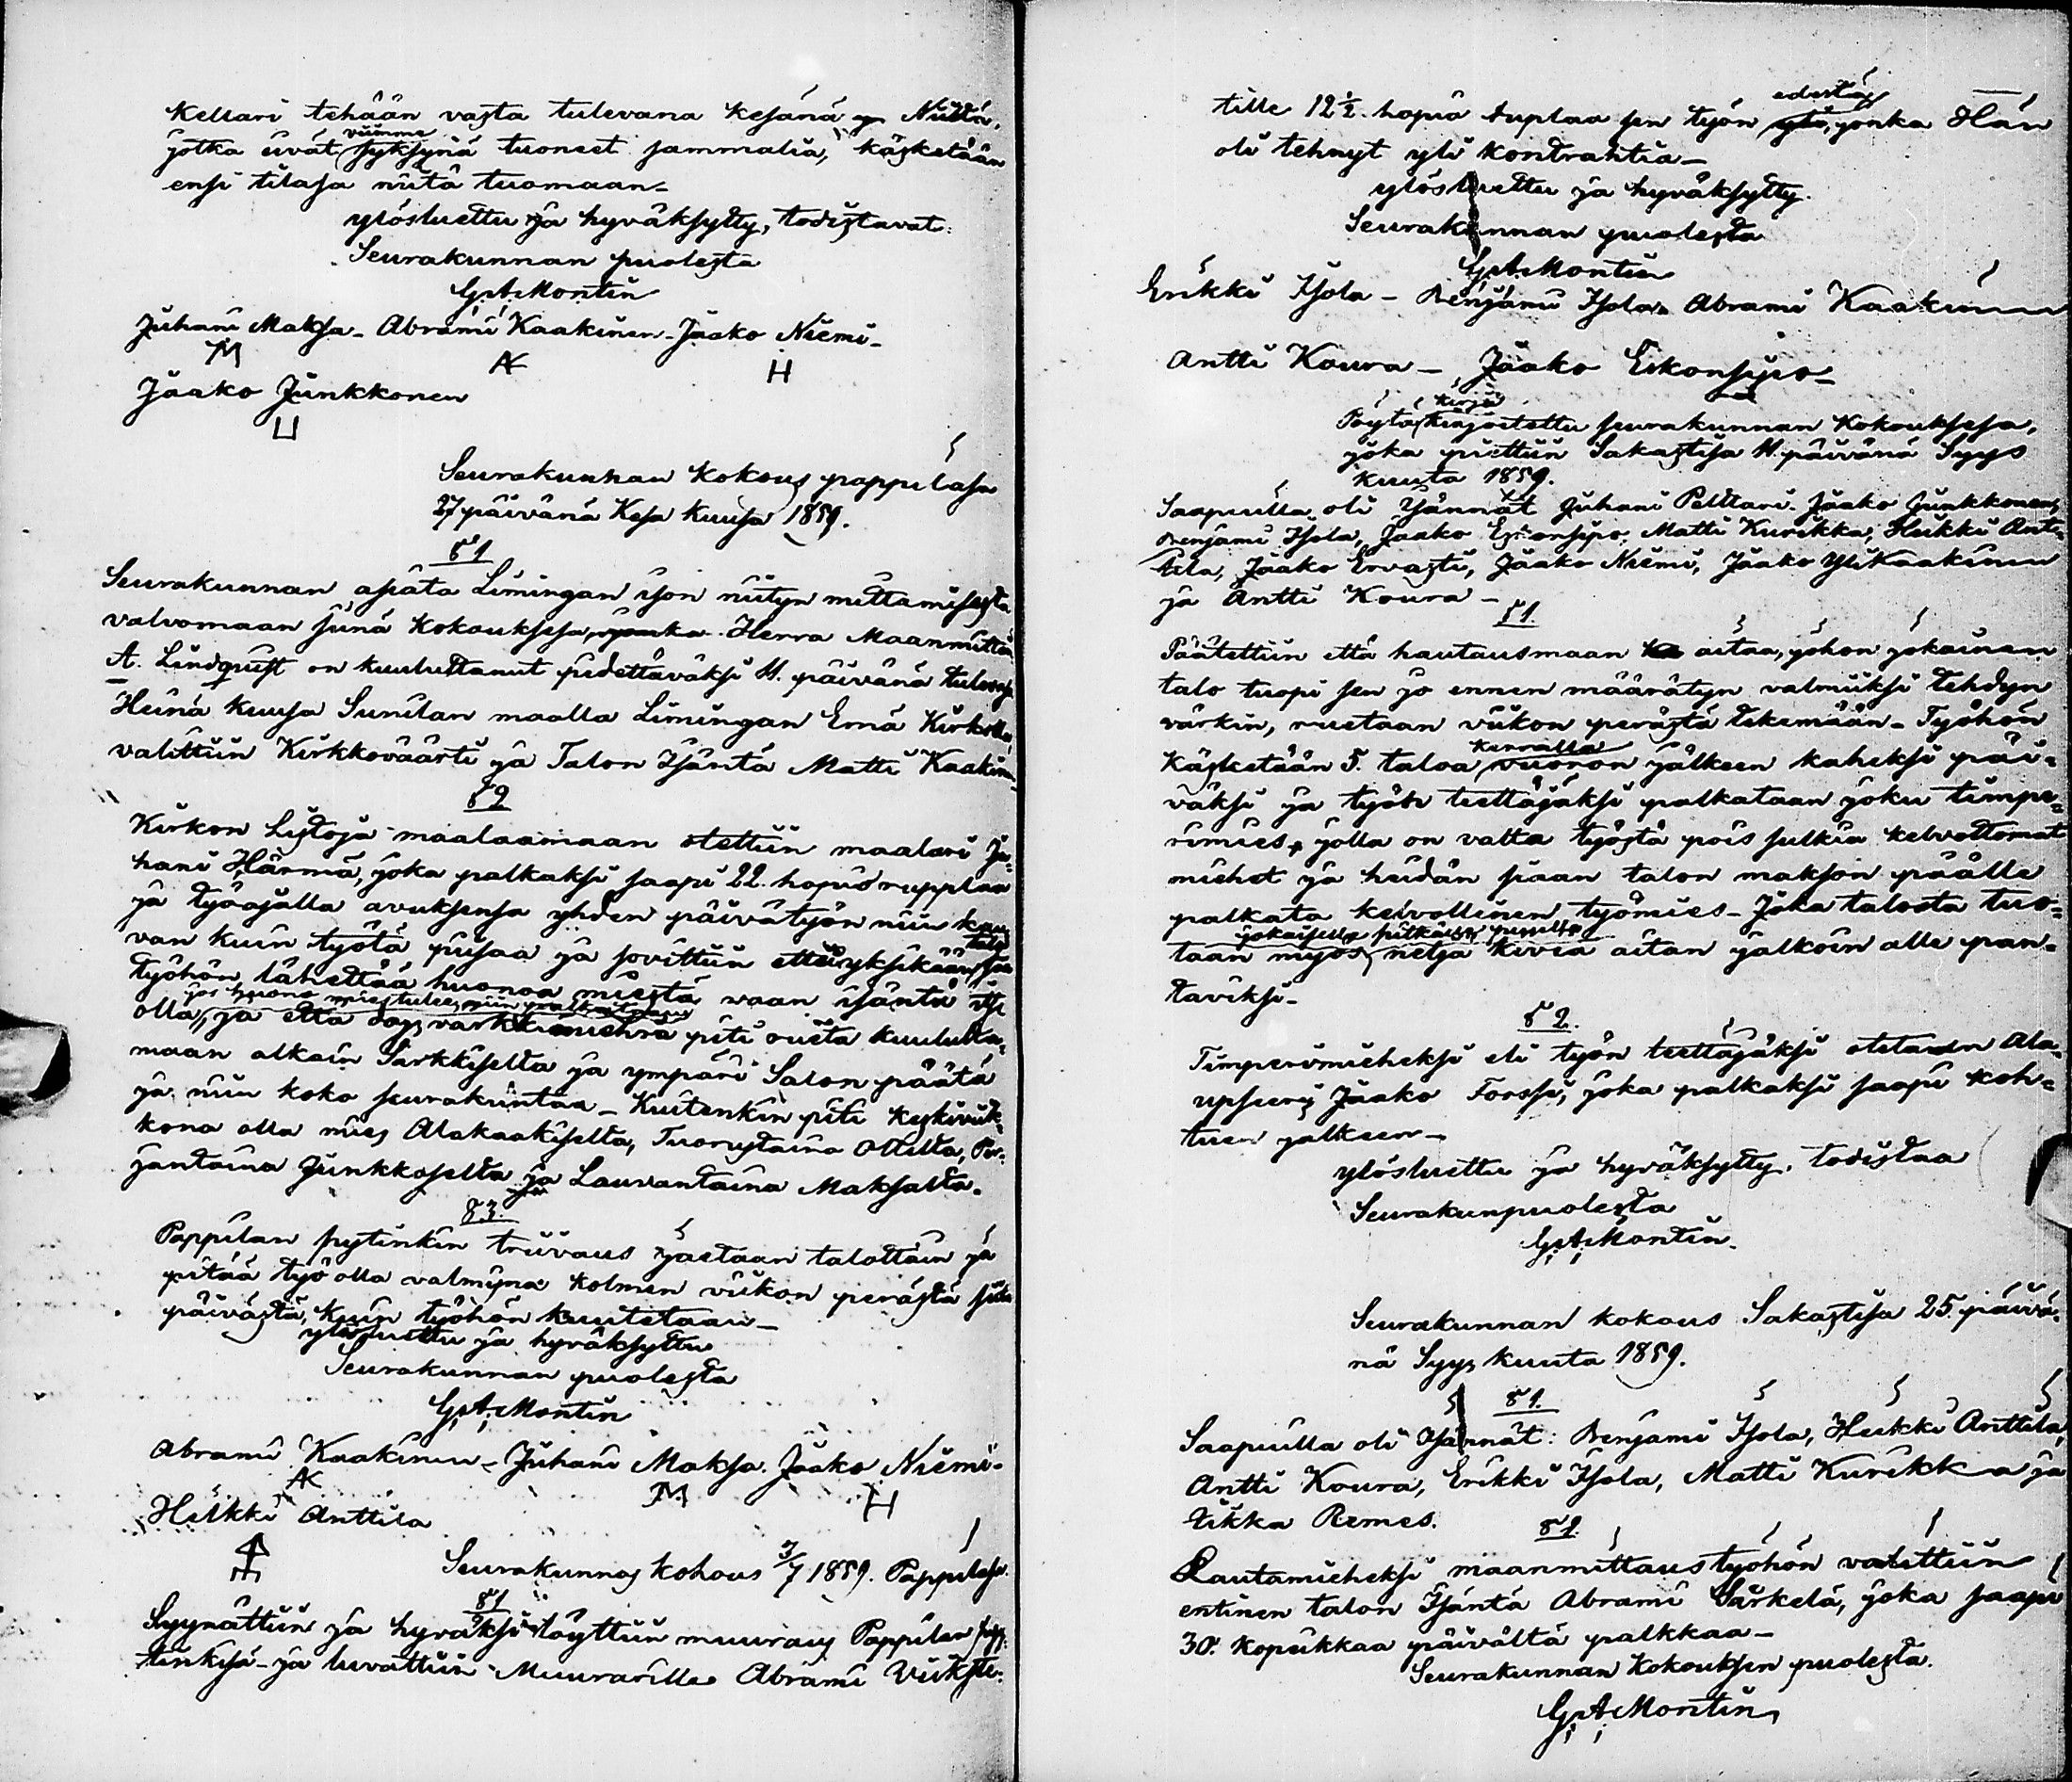 Kellari tehään vasta tulevana kesänä ja Niittä,
jotka eivät viimme syksynä tuoneet sammalia, käsketään
ensi tilasa niitä tuomaan_
ylösluettu ja hyväksytty, todistavat:
Seurakunnan puolesta
G. A. Montin
Juhani Maksa_ Abrami Kaakinen_ Jaako Niemi_
M AK H
Jaako Junkkonen
U
Seurakunnan kokous pappilasa
27 päivänä Kesä kuusa 1859.
§ 1
Seurakunnan asiata Limingan ison niityn mittamisesta
valvomaan siinä kokouksesa, Herra Maanmittari
A. Lindqvist on kuuluttanut pidettäväksi 11. päivänä tulevasa
Heinä kuusa Sunilan maalla Limingan Emä Kirkolla,
valittiin Kirkkoväärti ja Talon Isäntä Matti Kaakinen_
§ 2
Kirkon Listoja maalaamaan otettiin maalari Ju-
hani Härmä, joka palkaksi saapi 22. hopia rupplaa
ja työajalla avuksensa yhden päivätyön niin kau
van kuin työtä piisaa ja sovittiin ettei yksikään talo saa
työhön lähettää huonoa miestä vaan isäntä itse
olla, jos huono mies tulee, niin palkaitpasu
ja että dags varkki miehiä piti ruveta kuulutta-
maan alkain Särkkiseltä ja ympäri Salon päätä
ja niin koko seurakuntaa_ Kuitenkin piti keskiviik-
kona olla mies Alakaakiselta, Tuorustaina Ollilta, Per-
jantaina Junkkoselta ja Lauvantaina Maksalta.
§ 3.
Pappilan pytinkin triivaus jaetaan talottain ja
pitää työ olla valmiina kolmen viikon perästä siitä
päivästä, kuin työhön kuutetaan_
ylösluettu ja hyväksytty
Seurakunnan puolesta
G. A. Montin
Abrami Kaakinen_ Juhani Maksa. Jaako Niemi_
AK M H
Heikki Anttila
Seurakunnas kokous 3/7 1859. Pappilasa.
§ 1
Syynättiin ja hyväksi löyttiin muuraus Pappilan pyy-
tinkisä_ ja luvattiin Muurarille Abrami Vikste-
tille 12½. hopia ruplaa sen työn edestä, jonka Hän
oli tehnyt yli kontrahtia_
ylösluettu ja hyväksytty.
Seurakunnan puolesta
G. A. Montin
Erikki Isola_ Benjami Isola_ Abrami Kaakinen
Antti Koura_ Jaako Erkonsipo_
Pöytä kirja kirjoitettu seurakunnan Kokouksesa,
joka piettiin Sakastisa 11. päivänä Syys
kuuta 1859.
Saapuilla oli Isännät Juhani Pelttari. Jaako Junkkonen,
Benjami Isola, Jaako Erkonsipo, Matti Kurikka, Heikki Ant-
tila, Jaako Ervasti, Jaako Niemi, Jaako Ylikaakinen
ja Antti Koura_
§ 1.
Päätettiin että hautausmaan aitaa, johon jokainen
talo tuopi sen jo ennen määrätyn valmiiksi tehdyn
värkin, ruetaan viikon perästä tekemään_ Työhön
Käsketään 5. taloa kerralla vuoron jälkeen kaheksi päi-
väksi ja työn teettäjäksi palkataan joku timpe-
rimies, jolla on valta työstä pois sulkia kelvottomat
miehet ja heidän siaan talon makson päälle
palkata keivollinen työmies_ Joka talosta tuo-
taan myös jokaiselle pitkälle neljä kiviä aitan jalkoin alle pan-
taviksi_
§ 2.
Timperimieheksi eli työn teettäjäksi otetaan Ala-
upseeri Jaako Forssi, joka palkaksi saapi koh-
tuen jalkeen_
ylösluettu ja hyväksytty, todistaa
Seurakunpuolesta
G. A. Montin.
Seurakunnan kokous Sakastisa 25. päivä-
nä Syys kuuta 1859.
§ 1.
Saapuilla oli Isännät: Benjami Isola, Heikki Anttila,
Antti Koura, Erikki Isola, Matti Kurikka ja
Iikka Remes.
§ 2.
Lautamieheksi maanmittaus työhön valittiin
entinen talon Isäntä Abrami Särkelä, joka saapi
30. kopeikkaa päivältä palkkaa_
Seurakunnan Kokouksen puolesta.
G. A. Montin